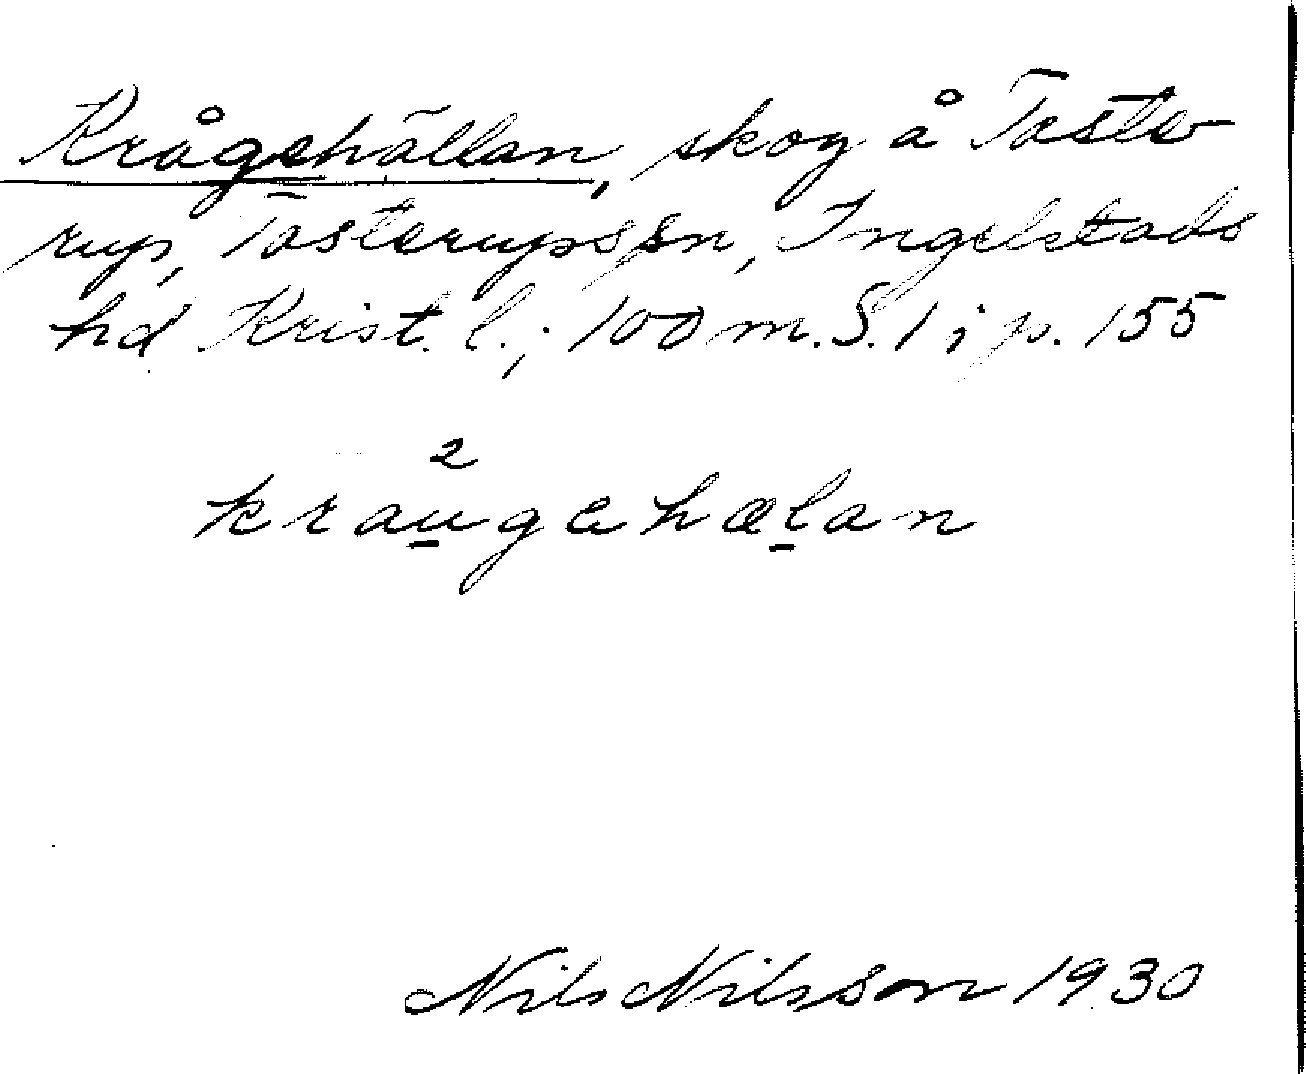 Krågehällan, skog å Toste
rup, Tosterupssn, Ingelstads
hd Krist. l.; 100 m. S. 1 i p. 155
2
kraugahælan
Nils Nilsson 1930